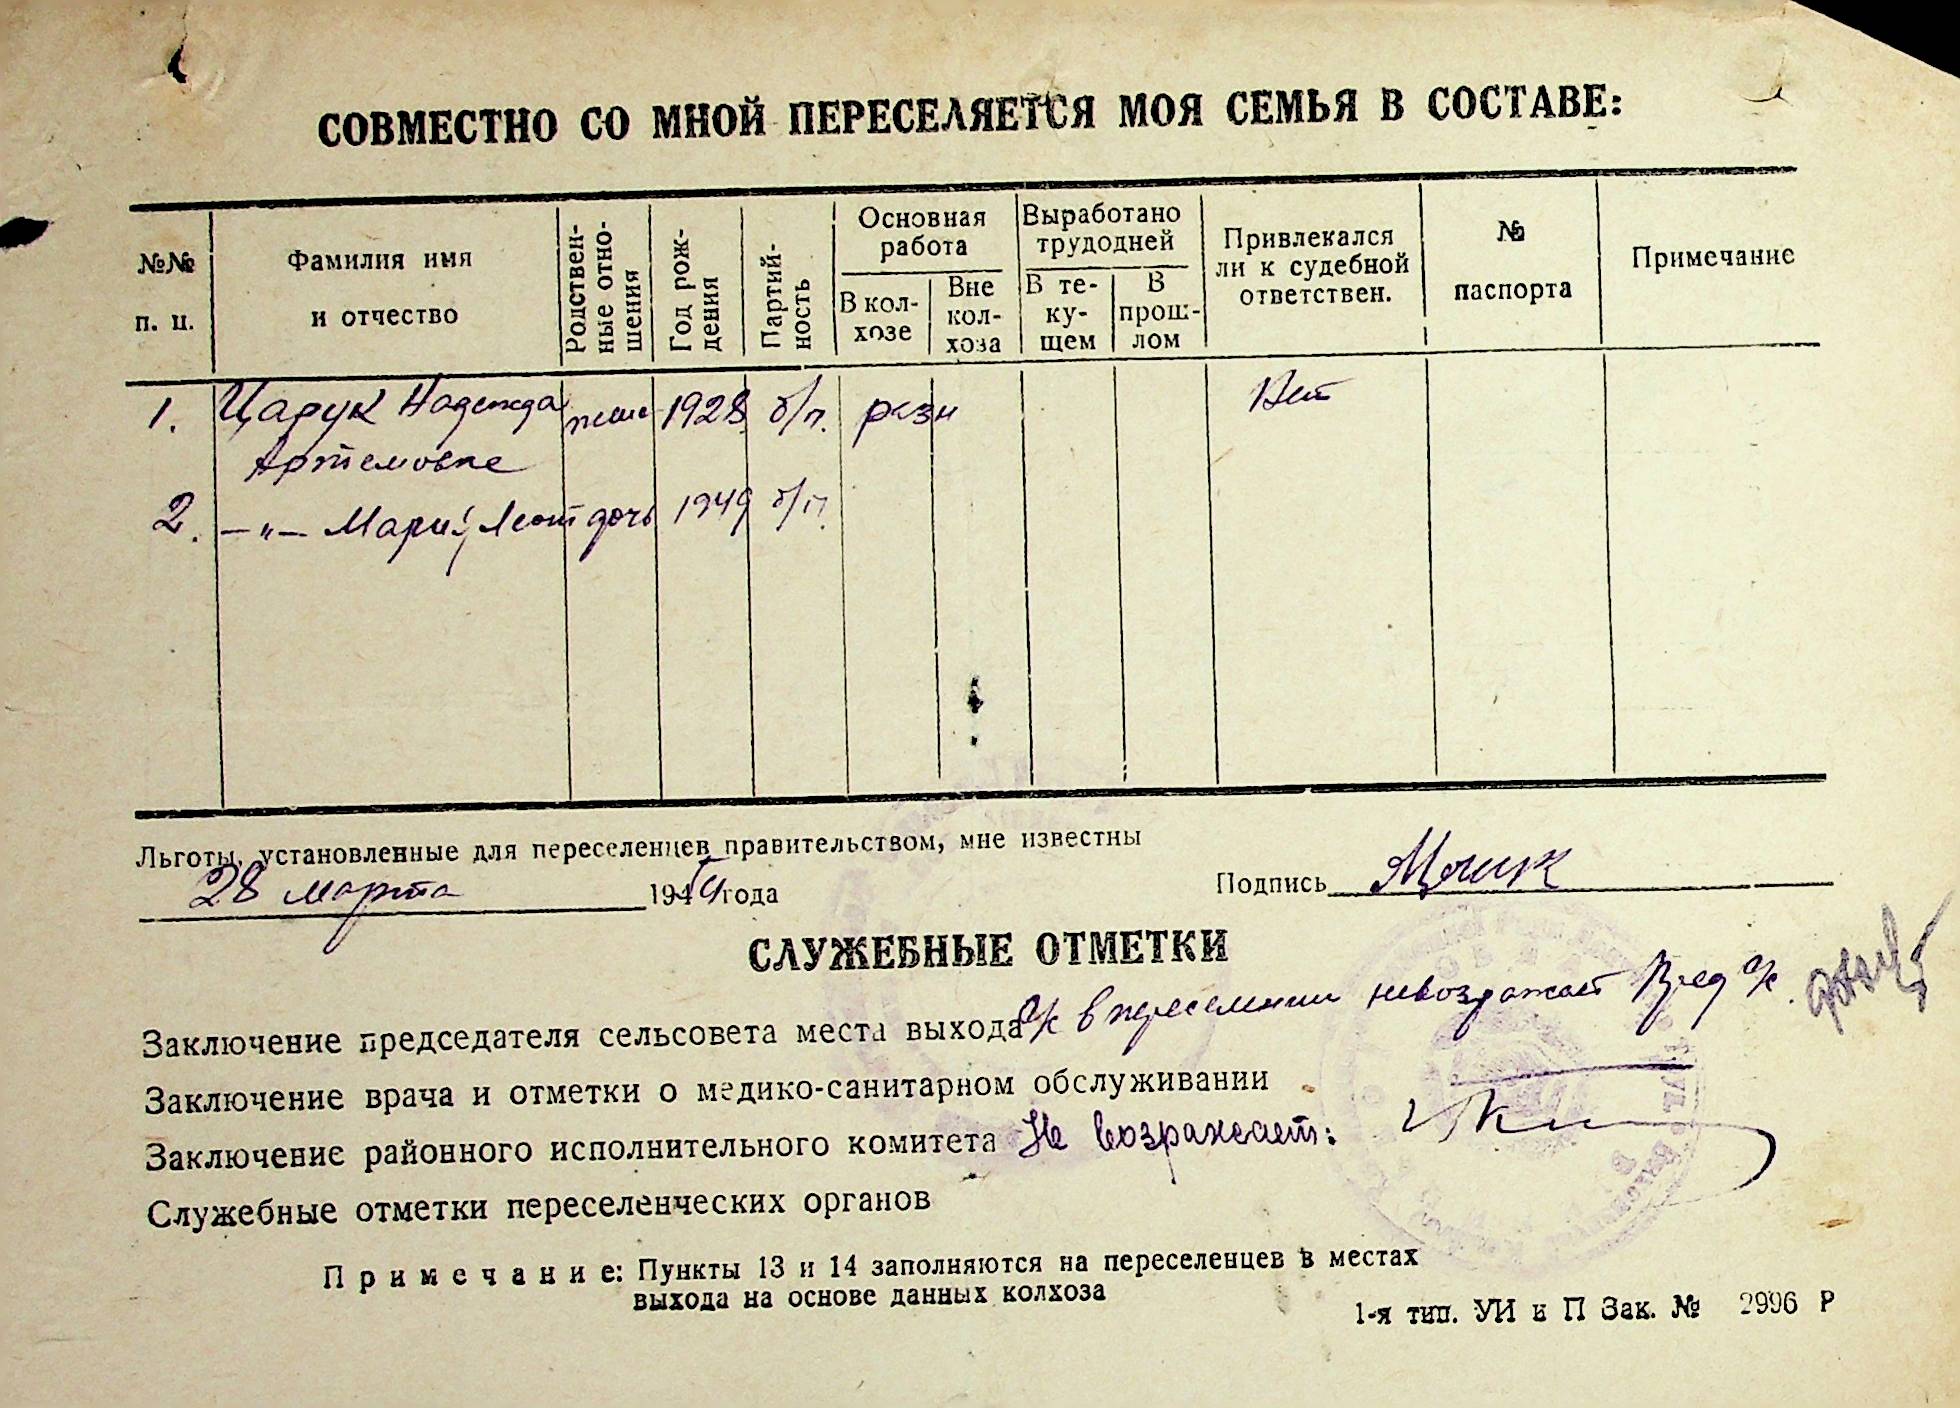 СОВМЕСТНО СО МНОЙ ПЕРЕСЕЛЯЕТСЯ МОЯ СЕМЬЯ В СОСТАВЕ:
№№ п. п.
Фамилия имя и отчество
Родствен-ные отно-шения
Год рож-дения
Партий-ность
Основная работа
В кол-хозе
Вне кол-хоза
Выработано трудодней
В те-ку-щем
В прош-лом
Привлекался ли к судебной ответствен.
№ паспорта
Примечание
1. Царук Надежда жена 1928 б/п. Нет
Артемовна
2. —„— Мария дочь 1949 б/п.
Льготы, установленные для переселенцев правительством, мне известны
28 марта 1954 года Подпись
СЛУЖЕБНЫЕ ОТМЕТКИ
Заключение председателя сельсовета места выхода с/с в переселении невозражает Пред с/с
Заключение врача и отметки о медико-санитарном обслуживании
Заключение районного исполнительного комитета Не возражает:
Служебные отметки переселенческих органов
Примечание: Пункты 13 и 14 заполняются на переселенцев в местах
выхода на основе данных колхоза
1-я тип. УИ и П Зак. № 2996 Р